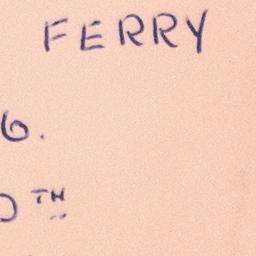 FERRY
6.
TH